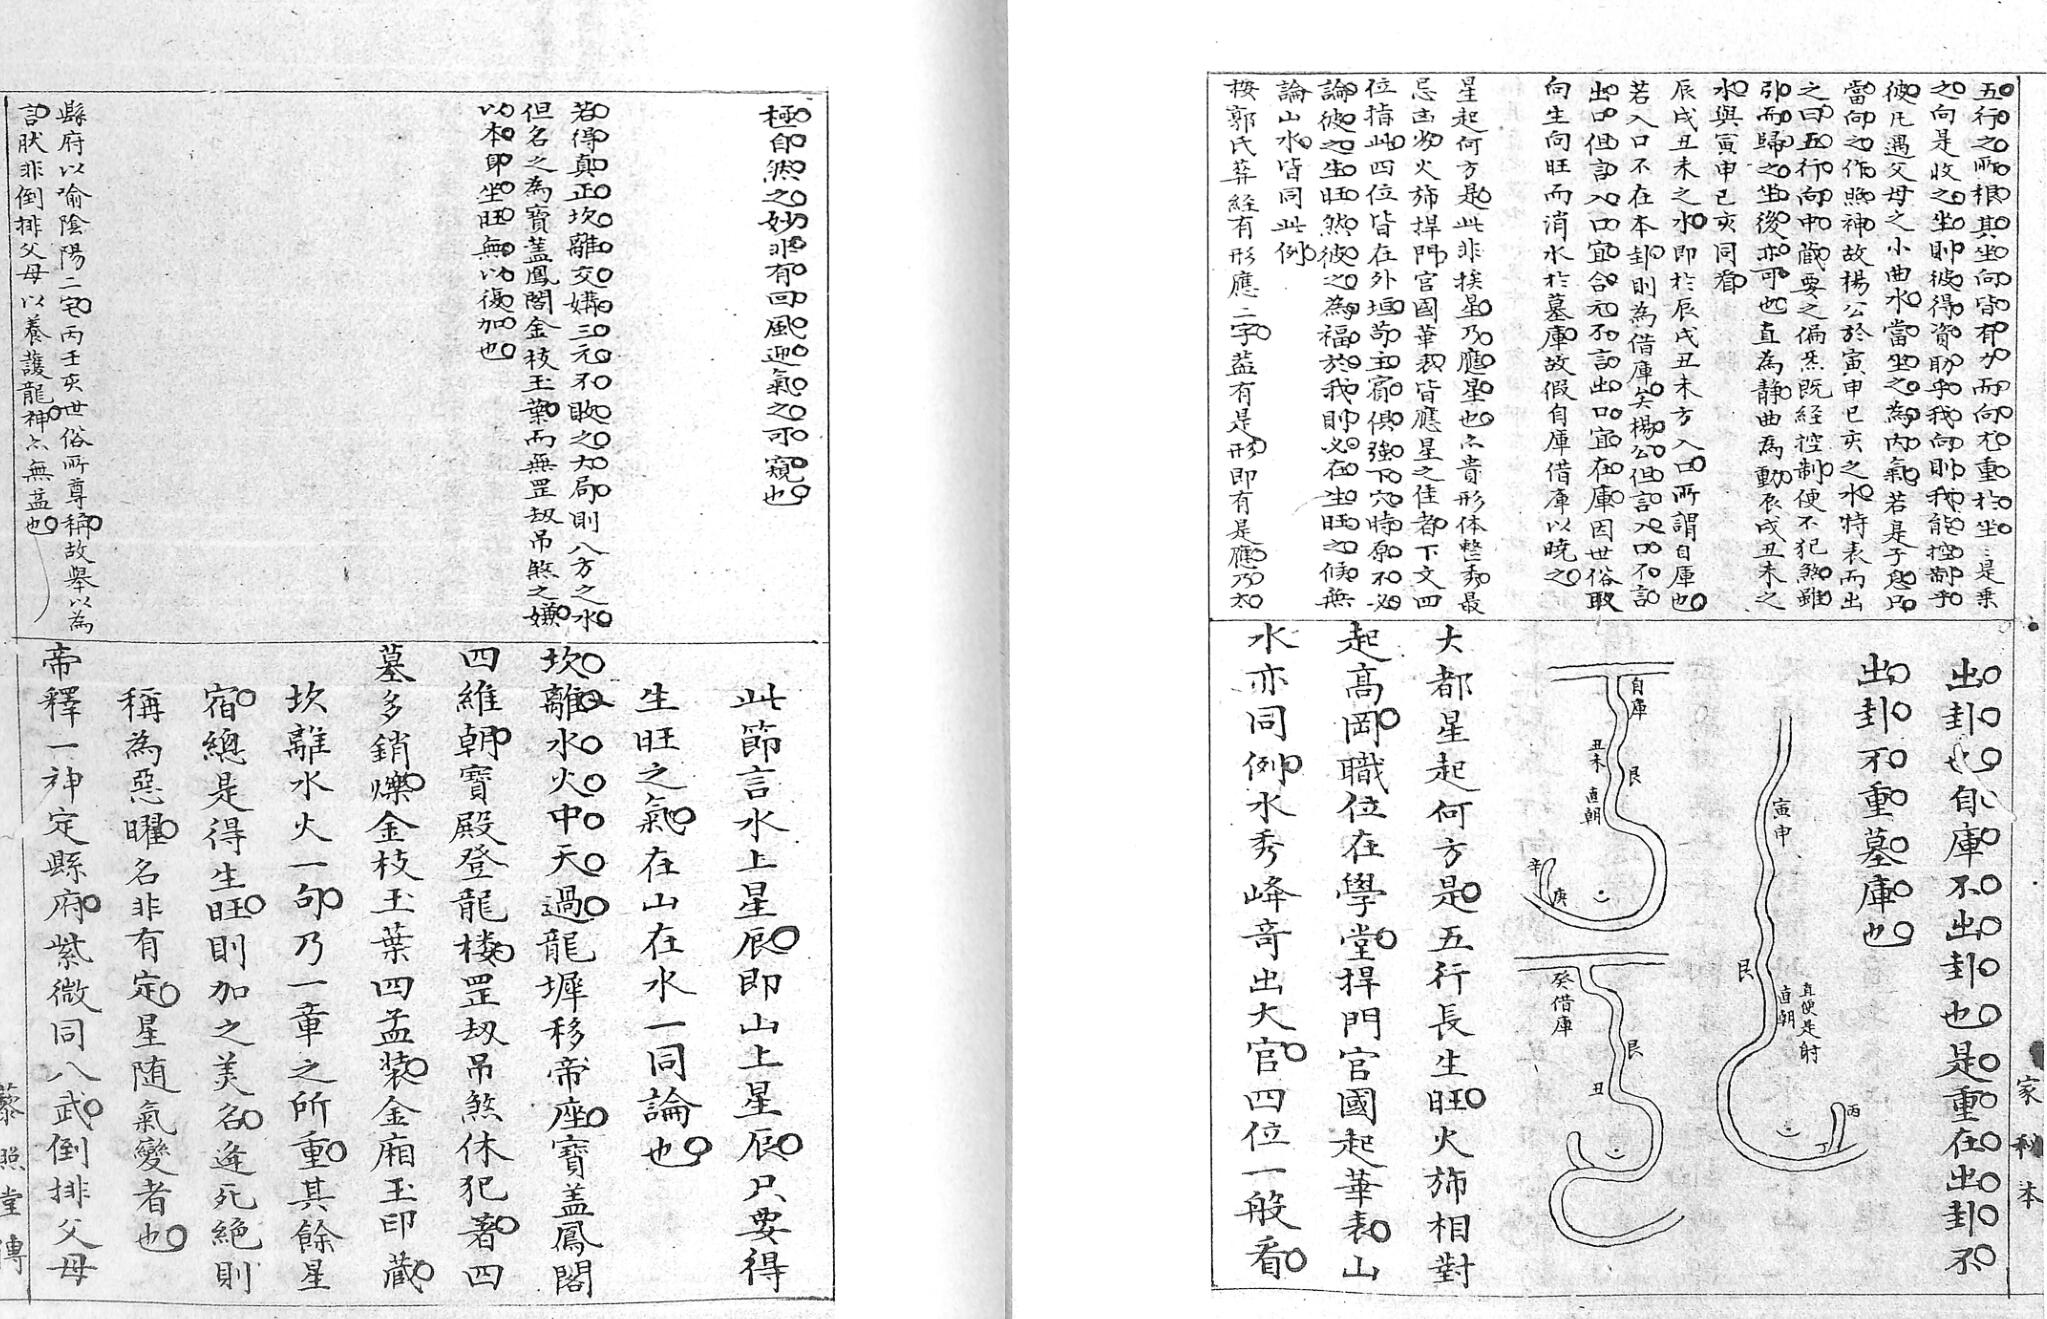 五行之所根其坐向皆有力而向尤重於坐是乘
之向是收之坐則彼得資助乎我向則我能控制乎
彼凡遇父母之小曲水當坐之為內氣若是子息只
當向之作照神故楊公於寅申巳亥之水特表而出
之曰五行向中藏要之偏炁既經控制便不犯煞雖
引而歸之坐後亦可也直為靜曲為動辰戌丑未之
水與寅申巳亥同看
辰戌丑未之水即於辰戌丑未方入口所謂自庫也
若入口不在本卦則為借庫矣楊公但言入口不言
出口但言入口宜合元不言出口宜在庫因世俗取
向生向旺而消水於墓庫故假自庫借庫以曉之
星起何方是此非挨星乃應星也亦貴形体整秀最
忌凶劣火斾捍門官國華表皆應星之佳者下文四
位指此四位皆在外垣苟主賓俱強下穴時原不必
論彼之生旺然彼之為福於我則必在生旺之候無
論山水皆同此例
按郭氏葬経有形應二字葢有是形即有是應乃太
出卦也自庫不出卦也是重在出卦不
出卦不重墓庫也
寅申
艮
直朝
直便是射
丙
丁
自庫
艮
丑未
直朝
辛
庚
癸借庫
艮
丑
大都星起何方是五行長生旺火斾相對
起高岡職位在學堂捍門官國起華表山
水亦同例水秀峰奇出大官四位一般看
家秘本
極自然之妙非有回風迎氣之可窺也
若得真正坎離交媾三元不敗之大局則八方之水
但名之為寶盖鳳閣金枝玉葉而無罡刼吊煞之嫌
以本即坐旺無以復加也
縣府以喻陰陽二宅丙壬亥世俗所尊稱故舉以為
言狀非倒排父母以養護龍神亦無益也
此節言水上星辰即山上星辰只要得
生旺之氣在山在水一同論也
坎離水火中天過龍墀移帝座寶盖鳳閣
四維朝寶殿登龍楼罡刼吊煞休犯著四
墓多銷爍金枝玉葉四孟装金廂玉印藏
坎離水火一句乃一章之所重其餘星
宿總是得生旺則加之美名逢死絕則
稱為惡曜名非有定星随氣變者也
帝釋一神定縣府紫微同八武倒排父母
藜照堂傳